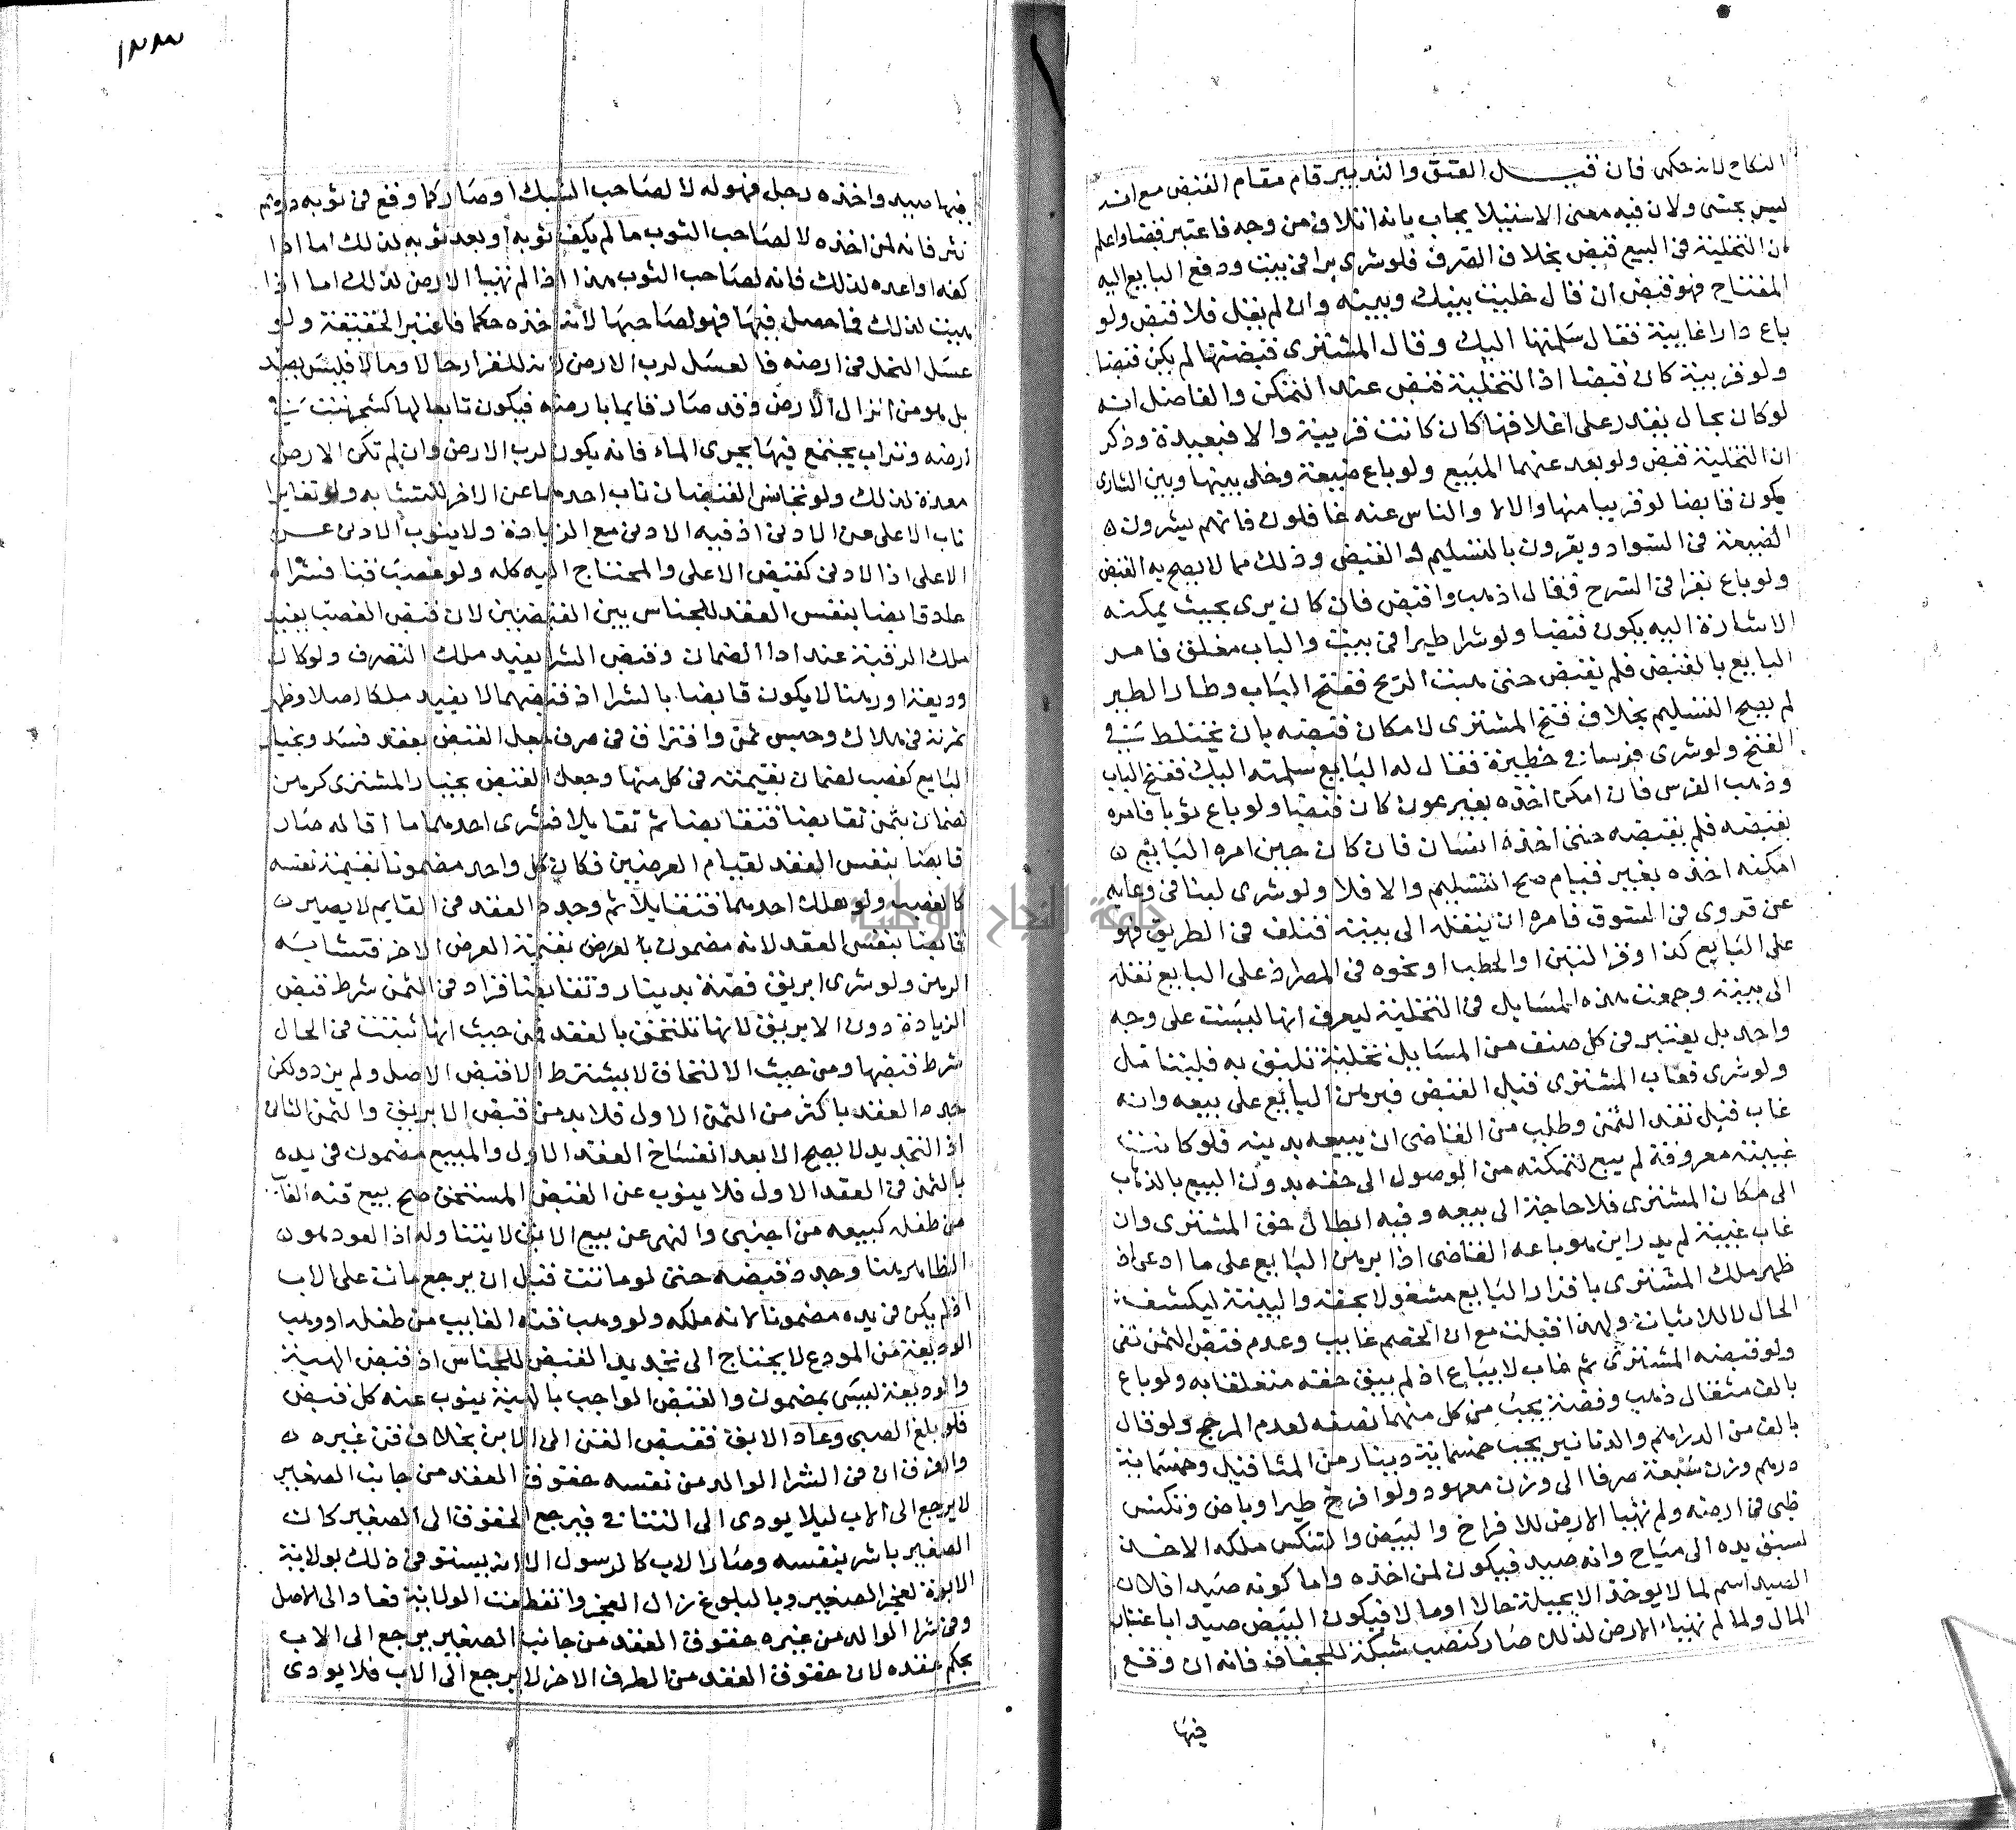 النكاح لانه حكمى فان قيل العتق والتدبير قام مقام القبض مع انه
ليس بحسى ولان فيه معنى الاستيلا يجاب بانه اتلاف من وجه فاعتبر قبضا واعلم
ان التخلية فى البيع قبض بخلاف الصرف فلو شرى برا فى بيت ودفع البايع اليه
المفتاح فهو قبض ان قال خليت بينك وبينه وان لم يقل فلا قبض ولو
باع دارا غايبة فقال سلمتها اليك وقال المشترى قبضتها لم يكن قبضا
ولو قريبة كان قبضا اذ التخلية قبض عند التمكن والفاصل انه
لو كان بحال يقدر على اغلاقها كان كانت قريبة والا فبعيدة وذكر
ان التخلية قبض ولو بعد عنهما المبيع ولو باع ضيعة وخلى بينها وبين الشارى
يكون قابضا لو قريبا منها والا لا والناس عنه غافلون فانهم يشرون
الضيعة فى السواد ويقرون بالتسليم والقبض وذلك مما لا يصح به القبض
ولو باع بقرا فى السرح فقال اذهب واقبض فان كان يرى بحيث يمكنه
الاشارة اليه يكون قبضا ولو شرا طيرا فى بيت والباب مغلق فامر
البايع بالقبض فلم يقبض حتى هبت الريح ففتح الباب وطار الطير
لم يصح التسليم بخلاف فتح المشترى لامكان قبضه بان يحتاط فى
الفتح ولو شرى فرسا فى حظيرة فقال له البايع سلمته اليك ففتح الباب
وذهب الفرس فان امكن اخذه بغير عون كان قبضا ولو باع ثوبا فامره
بقبضه فلم يقبضه حتى اخذه انسان فان كان حين امره البايع
امكنه اخذه بغير قيام صح التسليم والا فلا ولو شرى لبنا فى وعايه
عن قروى فى السوق فامره ان ينقله الى بيته فتلف فى الطريق فهو
على البايع كذا وقر التبن او الحطب او نحوه فى المصر اذ على البايع نقله
الى بيته وجمعت هذه المسايل فى التخلية ليعرف انها ليست على وجه
واحد بل يعتبر فى كل صنف من المسايل تخلية تليق به فليتامل
ولو شرى فغاب المشترى قبل القبض فبرهن البايع على بيعه وانه
غاب قبل نقد الثمن وطلب من القاضى ان يبيعه بدينه فلو كانت
غيبته معروفة لم يبع لتمكنه من الوصول الى حقه بدون البيع بالذهاب
الى مكان المشترى فلا حاجة الى بيعه وفيه ابطال حق المشترى وان
غاب غيبة لم يدر اين هو باعه القاضى اذا برهن البايع على ما ادعى اذ
ظهر ملك المشترى باقرار البايع مشغولا بحقه والبينة ليكشف
الحال لا للاثبات ولهذا قبلت مع ان الخصم غايب وعدم قبض الثمن نفى
ولو قبضه المشترى ثم غاب لا يباع اذ لم يبق حقه متعلقا به ولو باع
بالف مثقال ذهب وفضة يجب من كل منهما نصفه لعدم المرجح ولو قال
بالف من الدراهم والدنانير يجب خمسماية دينار من المثاقيل وخمسماية
درهم وزن سبعة صرفا الى وزن معهود ولو افرخ طيرا وباض وتكنس
ظبى فى ارضه ولم تهيا الارض للافراخ والبيض والتكنس ملكه الاخذ
لسبق يده الى مباح وانه صيد فيكون لمن اخذه واما كونه صيدا فلان
الصيد اسم لما لا يوخذ الا بحيلة حالا او مالا فيكون البيض صيدا باعتبار
المال ولما لم تهيا الارض لذلك صار كنصب شبكة للجفاف فانه ان وقع
فيها
١٢٣٣
فيها صيد واخذه رجل فهو له لا لصاحب الشبك او صار كما وقع فى ثوبه درهم
نثر فانه لمن اخذه لا لصاحب الثوب ما لم يكف ثوبه او يعد ثوبه لذلك اما اذا
كفه او اعده لذلك فانه لصاحب الثوب هذا اذا لم تهيا الارض لذلك اما اذا
هييت لذلك فما حصل فيها فهو لصاحبها لانه اخذه حكما فاعتبر الحقيقة ولو
عسل النحل فى ارضه فالعسل لرب الارض لانه للقرار حالا ومالا فليس بصيد
بل هو من انزال الارض وقد صار قايما بارضه فيكون تابعا لها كشجر نبت فى
ارضه وتراب يجتمع فيها بجرى الماء فانه يكون لرب الارض وان لم تكن الارض
معدة لذلك ولو تجانس القبضان ناب احدهما عن الاخر للتشابه ولو تغايرا
ناب الاعلى عن الادنى اذ فيه الادنى مع الزيادة ولا ينوب الادنى عن
الاعلى اذ الادنى كقبض الاعلى والمحتاج اليه كله ولو غصب قنا فشراه
عد قابضا بنفس العقد للجناس بين القبضين لان قبض الغصب يفيد
ملك الرقبة عند ادا الضمان وقبض الشرا يفيد ملك التصرف ولو كان
وديعة او رهنا لا يكون قابضا بالشرا اذ قبضهما لا يفيد ملكا اصلا وظهر
ثمرته فى هلاك وحبس ثمن وافتراق فى صرف جعل القبض بعقد فسد وبخيار
البايع كغصب لضمان بقيمته فى كل منها وجعل القبض بخيار المشترى كرهن
لضمان بثمن تقابضا فتقابضا ثم تقايلا فشرى احدهما ما اقاله صار
قابضا بنفس العقد لقيام العرضين فكان كل واحد مضمونا بقيمته نفسه
كالغصب ولو هلك احدهما فتقايلا ثم وجدد العقد فى القايم لا يصير
قابضا بنفس العقد لانه مضمون بالعرض بقيمة العرض الاخر فتشابه
الرهن ولو شرى ابريق فضة بدينار وتقابضا فزاد فى الثمن شرط قبض
الزيادة دون الابريق لانها تلتحق بالعقد فمن حيث انها ثبتت فى الحال
شرط قبضها ومن حيث الالتحاق لا يشترط الا قبض الاصل ولم يزد ولكن
جدد العقد باكثر من الثمن الاول فلا بد من قبض الابريق والثمن الثانى
اذ التجديد لا يصح الا بعد انفساخ العقد الاول والمبيع مضمون فى يده
بالثمن فى العقد الاول فلا ينوب عن القبض المستحق صح بيع قنه الابق
من طفله كبيعه من اجنبى والنهى عن بيع الابق لا يتناوله اذ العود هو
الظاهر هنا وجدد قبضه حتى لو مات قبل ان يرجع مات على الاب
اذ لم يكن فى يده مضمونا لانه ملكه ولو وهب قنه الغايب من طفله او وهب
الوديعة من المودع لا يحتاج الى تجديد القبض للجناس اذ قبض الهبة
والوديعة ليس بمضمون والقبض الواجب بالهبة ينوب عنه كل قبض
فلو بلغ الصبى وعاد الابق فقبض القن الى الابن بخلاف قن غيره
والفرق ان فى الشرا الوالد من نفسه حقوق العقد من جانب الصغير
لا يرجع الى الاب ليلا يودى الى التنافى فيرجع الحقوق الى الصغير كان
الصغير باشر بنفسه وصار الاب كالرسول الا انه يستوفى ذلك بولاية
الابوة لعجز الصغير وبالبلوغ زال العجز وانقطعت الولاية فعاد الى الاصل
وفى شرا الوالد من غيره حقوق العقد من جانب الصغير يرجع الى الاب
بحكم عقده لان حقوق العقد من الطرف الاخر لا يرجع الى الاب فلا يودى
جامعة النجاح الوطنية